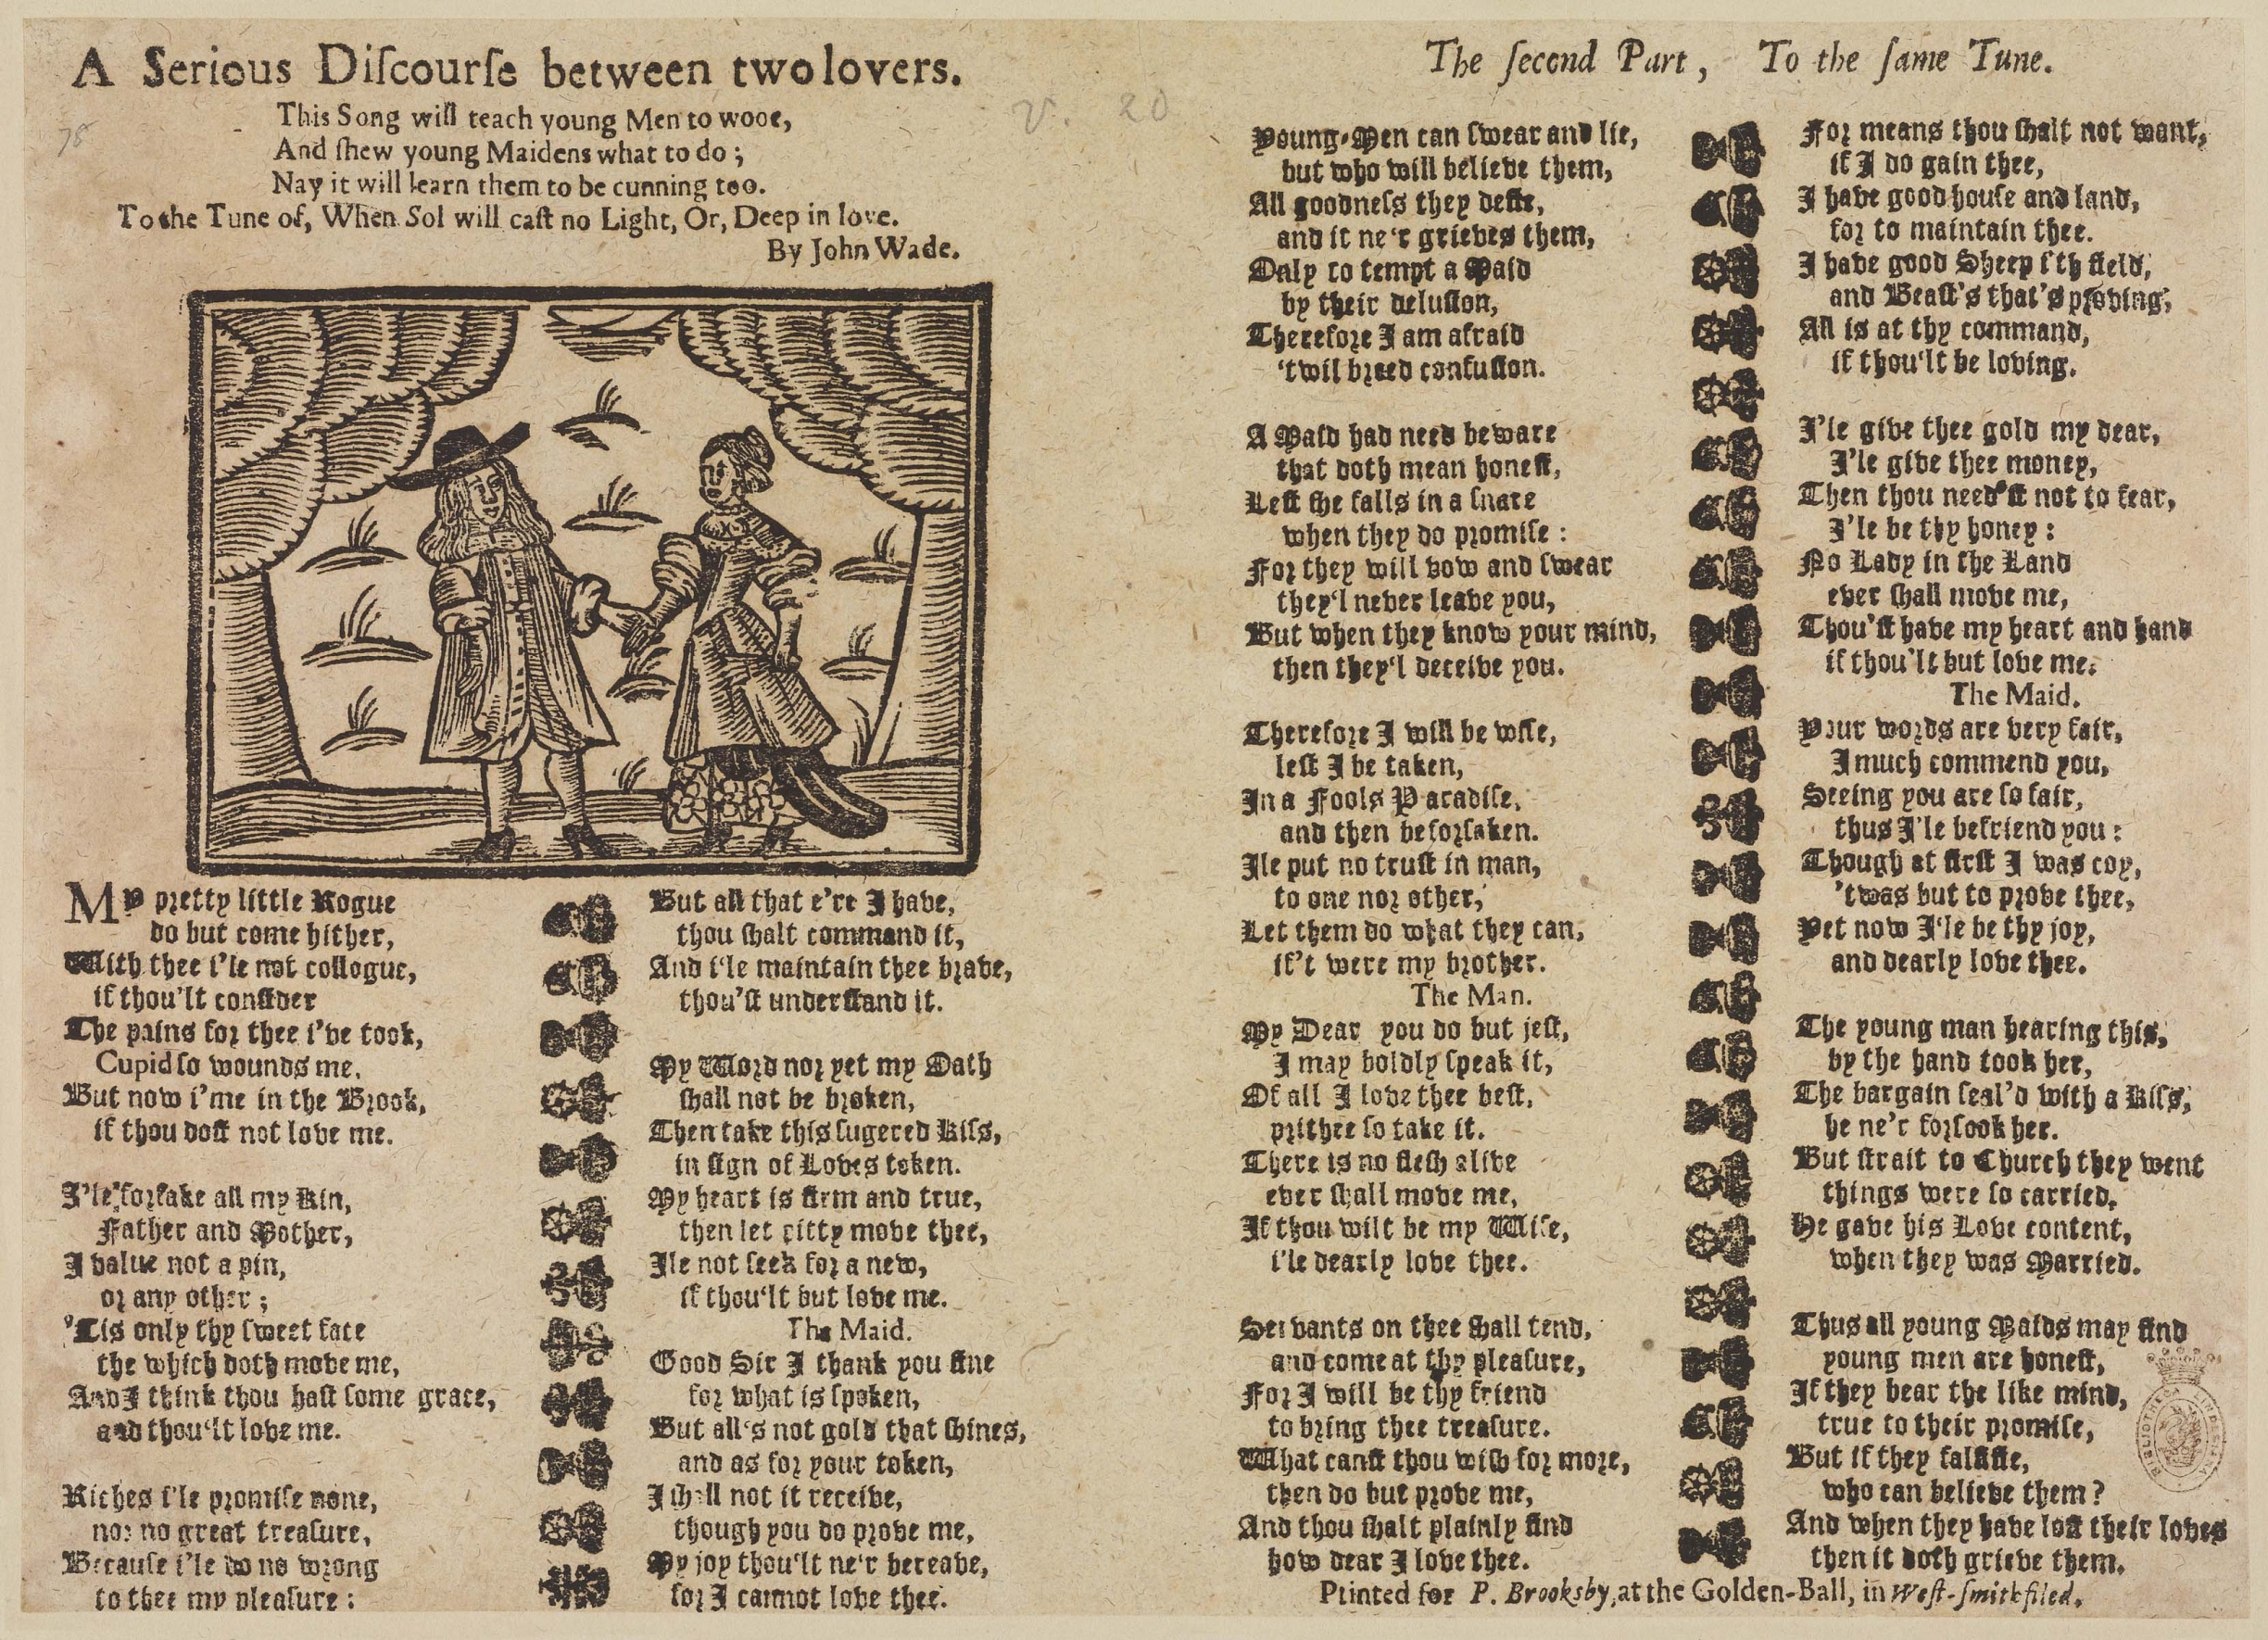 A Serious Diſcourſe between two lovers.
This Song will teach young Men to wooe,
And ſhew young Maidens what to do;
Nay it will learn them to be cunning too.
To the Tune of, When Sol will caſt no Light, Or, Deep in love.
By John Wade.
78
MY pretty little Rogue
do but come hither,
With thee i'le not collogue,
if thou'lt conſider
The pains for thee i've took,
Cupid ſo wounds me.
But now i'me in the Brook,
if thou doſt not love me.
I'le forſake all my Kin,
Father and Mother,
I value not a pin,
or any other;
'Tis only thy ſweet face
the which doth move me,
And I think thou haſt ſome grace,
and thou'lt love me.
Riches i'le promiſe none,
nor no great treaſure,
Becauſe i'le do no wrong
to thee my pleaſure:
But all that e're I have,
thou ſhalt command it,
And i'le maintain thee brave,
thou'ſt underſtand it.
My Word nor yet my Oath
ſhall not be broken,
Then take this ſugered Kiſs,
in ſign of Loves token.
My heart is firm and true,
then let pitty move thee,
Ile not ſeek for a new,
if thou'lt but love me.
The Maid.
Good Sir I thank you fine
for what is ſpoken,
But all's not gold that ſhines,
and as for your token,
I ſhall not it receive,
though you do prove me,
My joy thou'lt ne'r bereave,
for I cannot love thee.
v. 20
The ſecond Part, To the ſame Tune.
Young-Men can ſwear and lie,
but who will believe them,
All goodneſs they defie,
and it ne'r grieves them,
Only to tempt a Maid
by their deluſion,
Therefore I am afraid
'twil breed confuſion.
A Maid had need beware
that doth mean honeſt,
Leſt ſhe falls in a ſnare
when they do promiſe:
For they will vow and ſwear
they'l never leave you,
But when they know your mind,
then they'l deceive you.
Therefore I will be wiſe,
leſt I be taken,
In a Fools Paradiſe,
and then be forſaken.
Ile put no truſt in man,
to one nor other,
Let them do what they can,
if't were my brother.
The Man.
My Dear you do but jeſt,
I may boldly ſpeak it,
Of all I love thee beſt,
prithee ſo take it.
There is no fleſh alive
ever ſhall move me,
If thou wilt be my Wife,
i'le dearly love thee.
Servants on thee ſhall tend,
and come at thy pleaſure,
For I will be thy friend
to bring thee treaſure.
What canſt thou wiſh for more,
then do but prove me,
And thou ſhalt plainly find
how dear I love thee.
For means thou ſhalt not want,
if I do gain thee,
I have good houſe and land,
for to maintain thee.
I have good Sheep i'th field,
and Beaſt's that's proving,
All is at thy command,
if thou'lt be loving.
I'le give thee gold my dear,
I'le give thee money,
Then thou need'ſt not to fear,
I'le be thy honey:
No Lady in the Land
ever ſhall move me,
Thou'ſt have my heart and hand
if thou'lt but love me.
The Maid.
Your words are very fair,
I much commend you,
Seeing you are ſo fair,
thus I'le befriend you:
Though at firſt I was coy,
'twas but to prove thee,
Yet now I'le be thy joy,
and dearly love thee.
The young man hearing this,
by the hand took her,
The bargain ſeal'd with a Kiſs,
he ne'r forſook her.
But ſtrait to Church they went
things were ſo carried,
He gave his Love content,
when they was Married.
Thus all young Maids may find
young men are honeſt,
If they bear the like mind,
true to their promiſe,
But if they falſifie,
who can believe them?
And when they have loſt their loves
then it doth grieve them.
Printed for P. Brooksby, at the Golden-Ball, in Weſt-ſmithfiled.
BIBLIOTHECA LINDESIANA